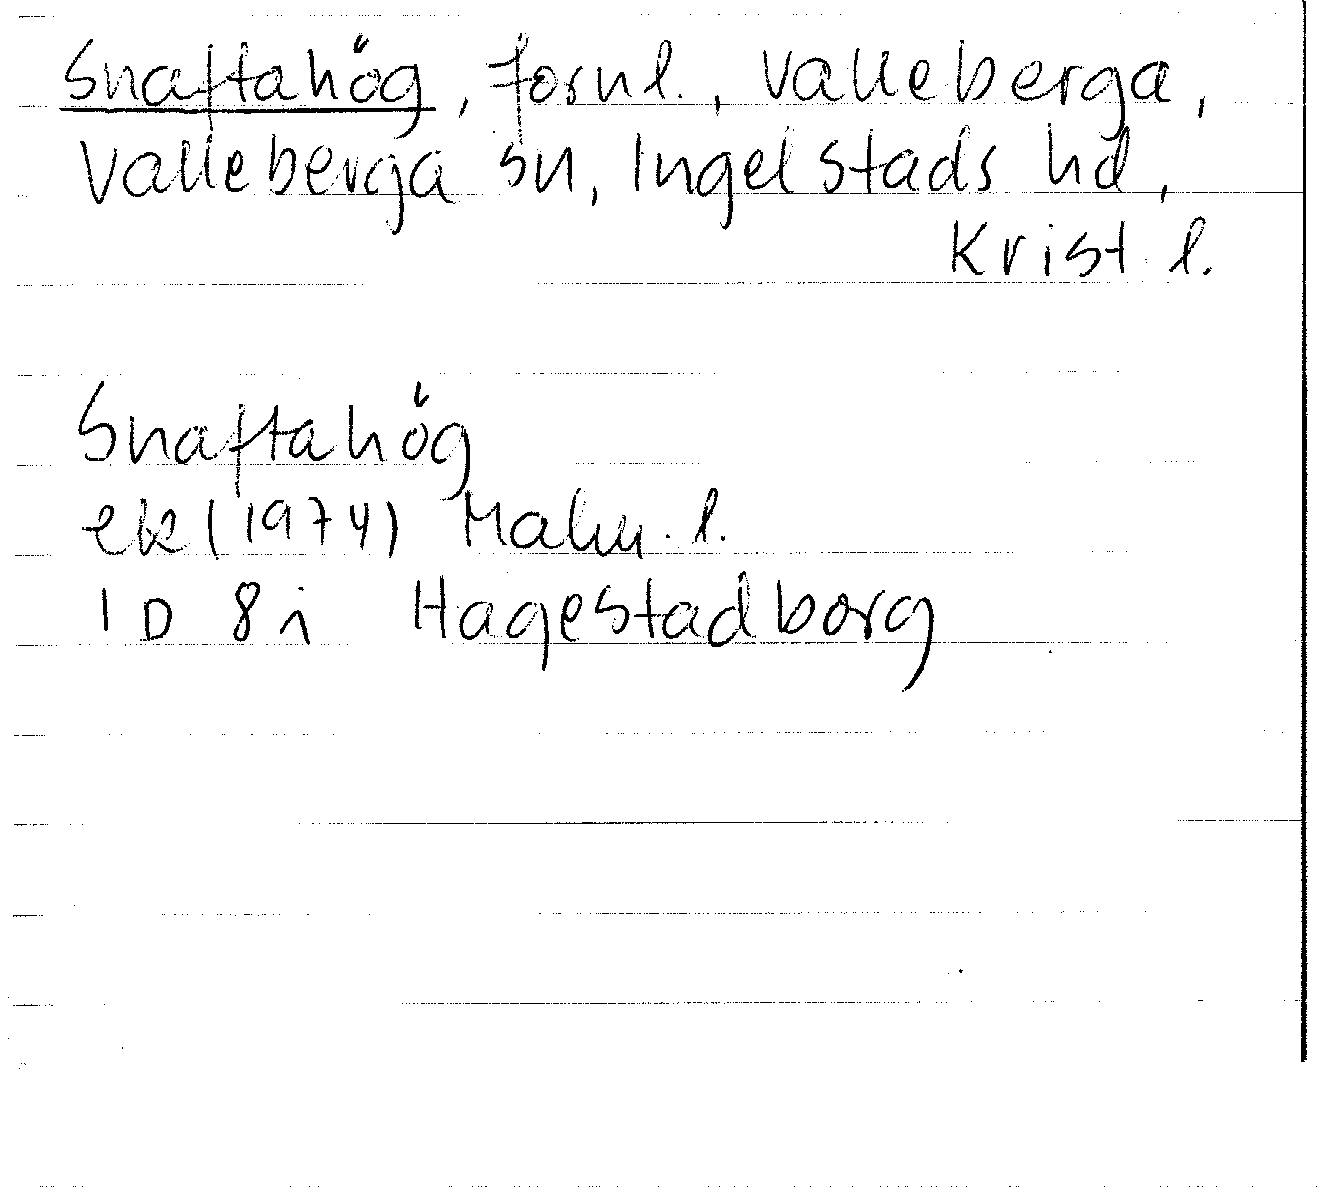 Snaftahög, fornl., Valleberga,
Valleberga sn, Ingelstads hd,
Krist. l.
Snaftahög
ek (1974) Malm. l.
1 D 8 i Hagestadborg